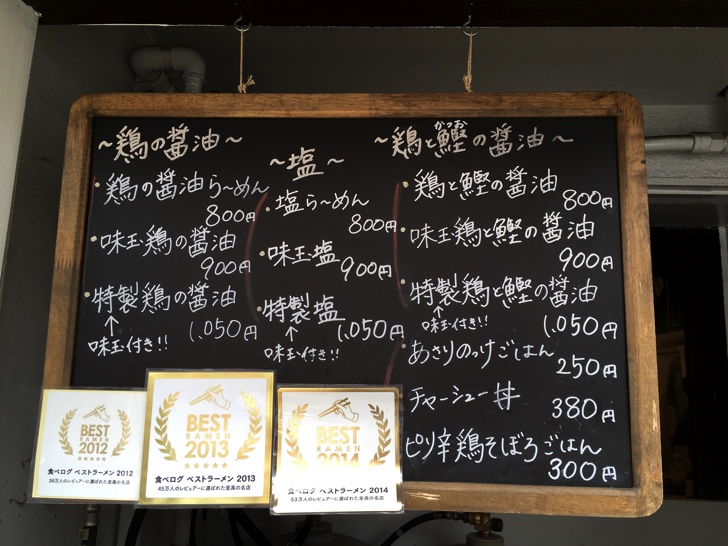 ～鶏の醤油～
・鶏の醤油ら～めん
800円
・味玉鶏の醤油
900円
・特製鶏の醤油
↑
味玉付き!!
1,050円
～塩～
・塩ら～めん
800円
・味玉塩
900円
・特製塩
↑
味玉付き!!
1,050円
かつお
～鶏と鰹の醤油～
・鶏と鰹の醤油
800円
・味玉鶏と鰹の醤油
900円
・特製鶏と鰹の醤油
↑
味玉付き!!
1,050円
・あさりのっけごはん
250円
チャーシュー丼
380円
ピリ辛鶏そぼろごはん
300円
BEST
RAMEN
2012
★★★★★
食べログ ベストラーメン 2012
38万人のレビュアーに選ばれた至高の名店
BEST
RAMEN
2013
★★★★★
食べログ ベストラーメン 2013
45万人のレビュアーに選ばれた至高の名店
BEST
RAMEN
2014
食べログ ベストラーメン 2014
53万人のレビュアーに選ばれた至高の名店